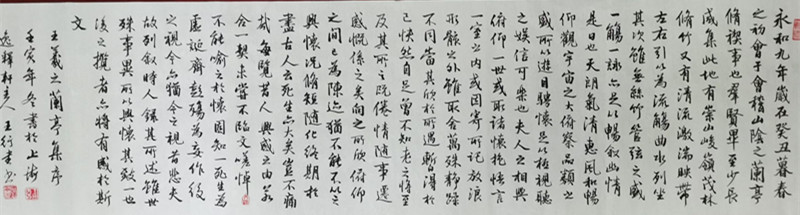 永和九年歲在癸丑暮春
之初會于會稽山陰之蘭亭
脩禊事也羣賢畢至少長
咸集此地有崇山峻嶺茂林
脩竹又有清流激湍映帶
左右引以為流觴曲水列坐
其次雖無絲竹管弦之盛
一觴一詠亦足以暢敘幽情
是日也天朗氣清惠風和暢
仰觀宇宙之大俯察品類之
盛所以遊目騁懷足以極視聽
之娛信可樂也夫人之相與
俯仰一世或取諸懷抱悟言
一室之內或因寄所託放浪
形骸之外雖取舍萬殊靜躁
不同當其欣於所遇暫得於
己怏然自足曾不知老之將至
及其所之既倦情隨事遷
感慨係之矣向之所欣俯仰
之間已為陳迹猶不能不以之
興懷況脩短隨化終期於
盡古人云死生亦大矣豈不痛
哉每覽昔人興感之由若
合一契未嘗不臨文嗟悼
不能喻之於懷固知一死生為
虛誕齊彭殤為妄作後
之視今亦猶今之視昔悲夫
故列敘時人錄其所述雖世
殊事異所以興懷其致一也
後之攬者亦將有感於斯
文
王羲之蘭亭集序
壬寅年冬書於上海
軒主人 王行書